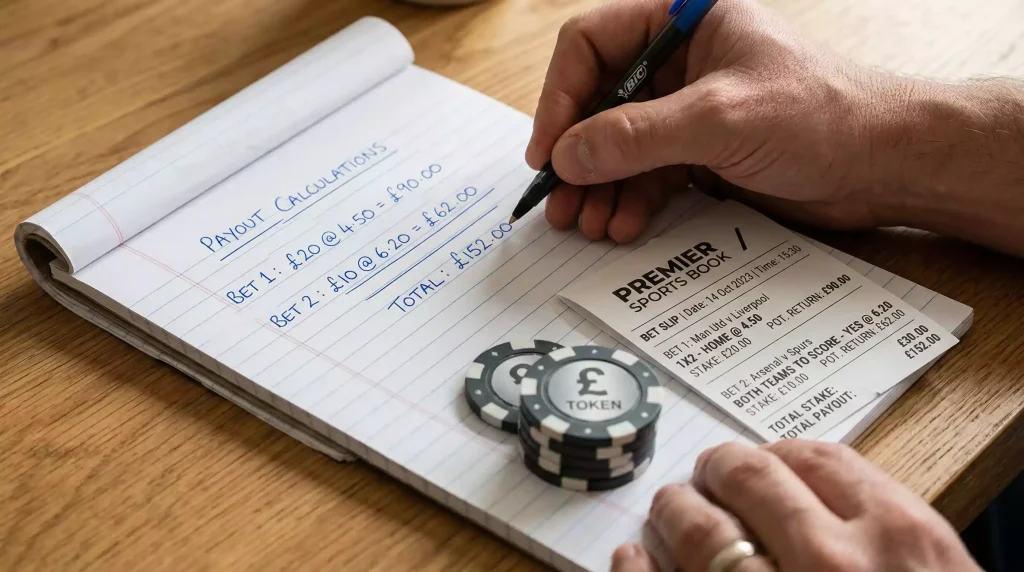 PAYOUT CALCULATIONS
BET 1: £20 @ 4.50 = £90.00
BET 2: £10 @ 6.20 = £62.00
TOTAL: £152.00
BIC
PREMIER /
SPORTS BOOK
BET SLIP | Date: 14 Oct 2023 | Time: 15:30
BET 1: Man Utd v Liverpool
1X2 - HOME @ 4.50
STAKE: £20.00 POT. RETURN: £90.00
BET 2: Arsenal v Spurs
BOTH TEAMS TO SCORE - YES @ 6.20
STAKE: £10.00 POT. RETURN: £62.00
TOTAL STAKE: £30.00
TOTAL PAYOUT: £152.00
£
£
TOKEN